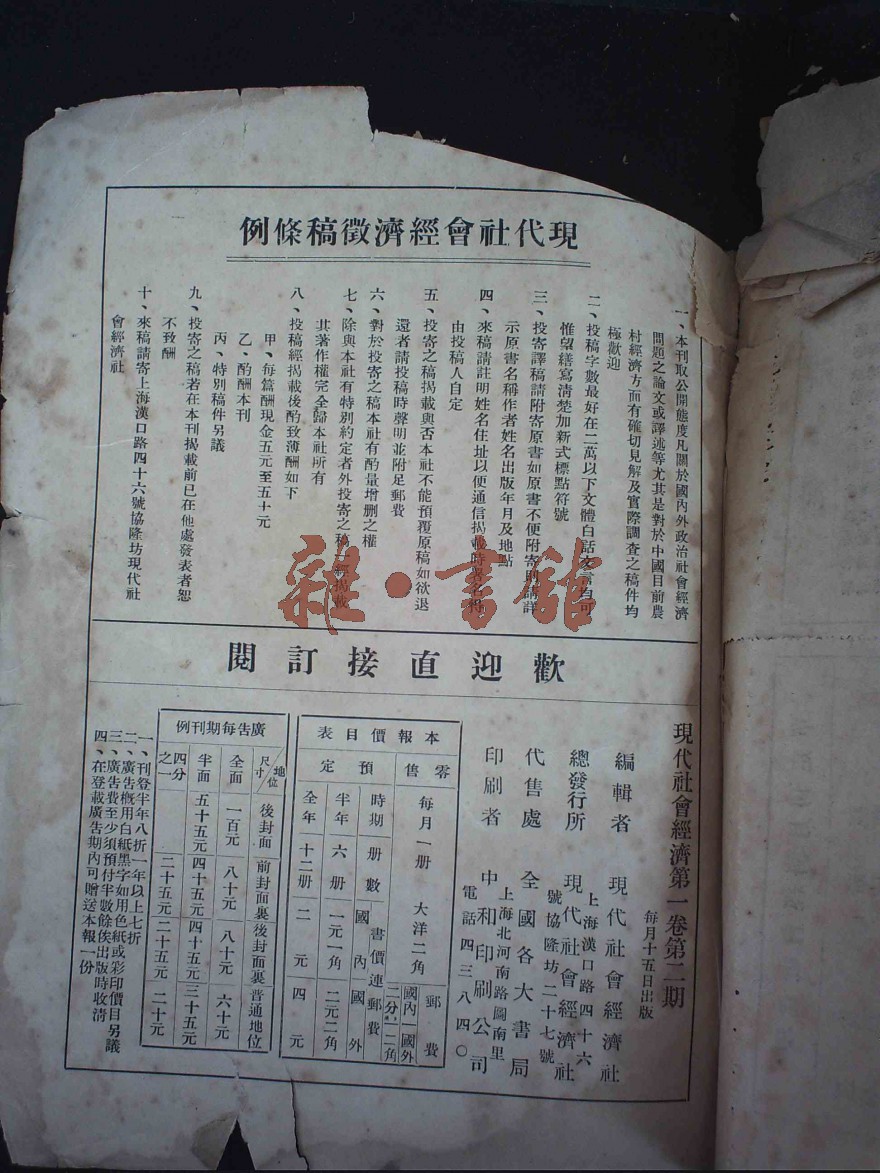 現代社會經濟徵稿條例
一、本刊取公開態度凡關於國內外政治社會經濟
問題之論文或譯述等尤其是對於中國目前農
村經濟方面有確切見解及實際調查之稿件均
極歡迎
二、投稿字數最好在二萬以下文體白話文言均可
惟望繕寫清楚加新式標點符號
三、投寄譯稿請附寄原書如原書不便附寄則請詳
示原書名稱作者姓名出版年月及地點
四、來稿請註明姓名住址以便通信揭載時署名概
由投稿人自定
五、投寄之稿揭載與否本社不能預覆原稿如欲退
還者請投稿時聲明並附足郵費
六、對於投寄之稿本社有酌量增删之權
七、除與本社有特別約定者外投寄之稿一經揭載
其著作權完全歸本社所有
八、投稿經揭載後酌致薄酬如下
甲、每篇酬現金五元至五十元
乙、酌酬本刊
丙、特別稿件另議
九、投寄之稿若在本刊揭載前已在他處發表者恕
不致酬
十、來稿請寄上海漢口路四十六號協隆坊現代社
會經濟社
雜·書舘
歡迎直接訂閱
現代社會經濟第一卷第二期
每月十五日出版
編輯者 現代社會經濟社
總發行所 現代社會經濟社
上海漢口路四十六
號協隆坊二十七號
代售處 全國各大書局
印刷者 中和印刷公司
上海北河南路圖南里
電話四三八四〇
本報價目表
零售 每月一册 大洋二角 郵費 國內 二分 國外 二角
預定 時期 册數 書價連郵費 國內 國外
半年 六册 一元一角 二元二角
全年 十二册 二元 四元
廣告每期刊例
地位 尺寸 後封面 前封面裏 後封面裏 普通地位
全面 一百元 八十元 八十元 六十元
半面 五十五元 四十五元 四十五元 三十五元
四分之一 二十五元 二十五元 二十元
一、刊登半年八折一年以上七折
二、廣告概用白紙黑字如用色紙或彩印價目另議
三、廣告費至少須預付半數餘俟出版時收清
四、在登載廣告期內可贈送本報一份